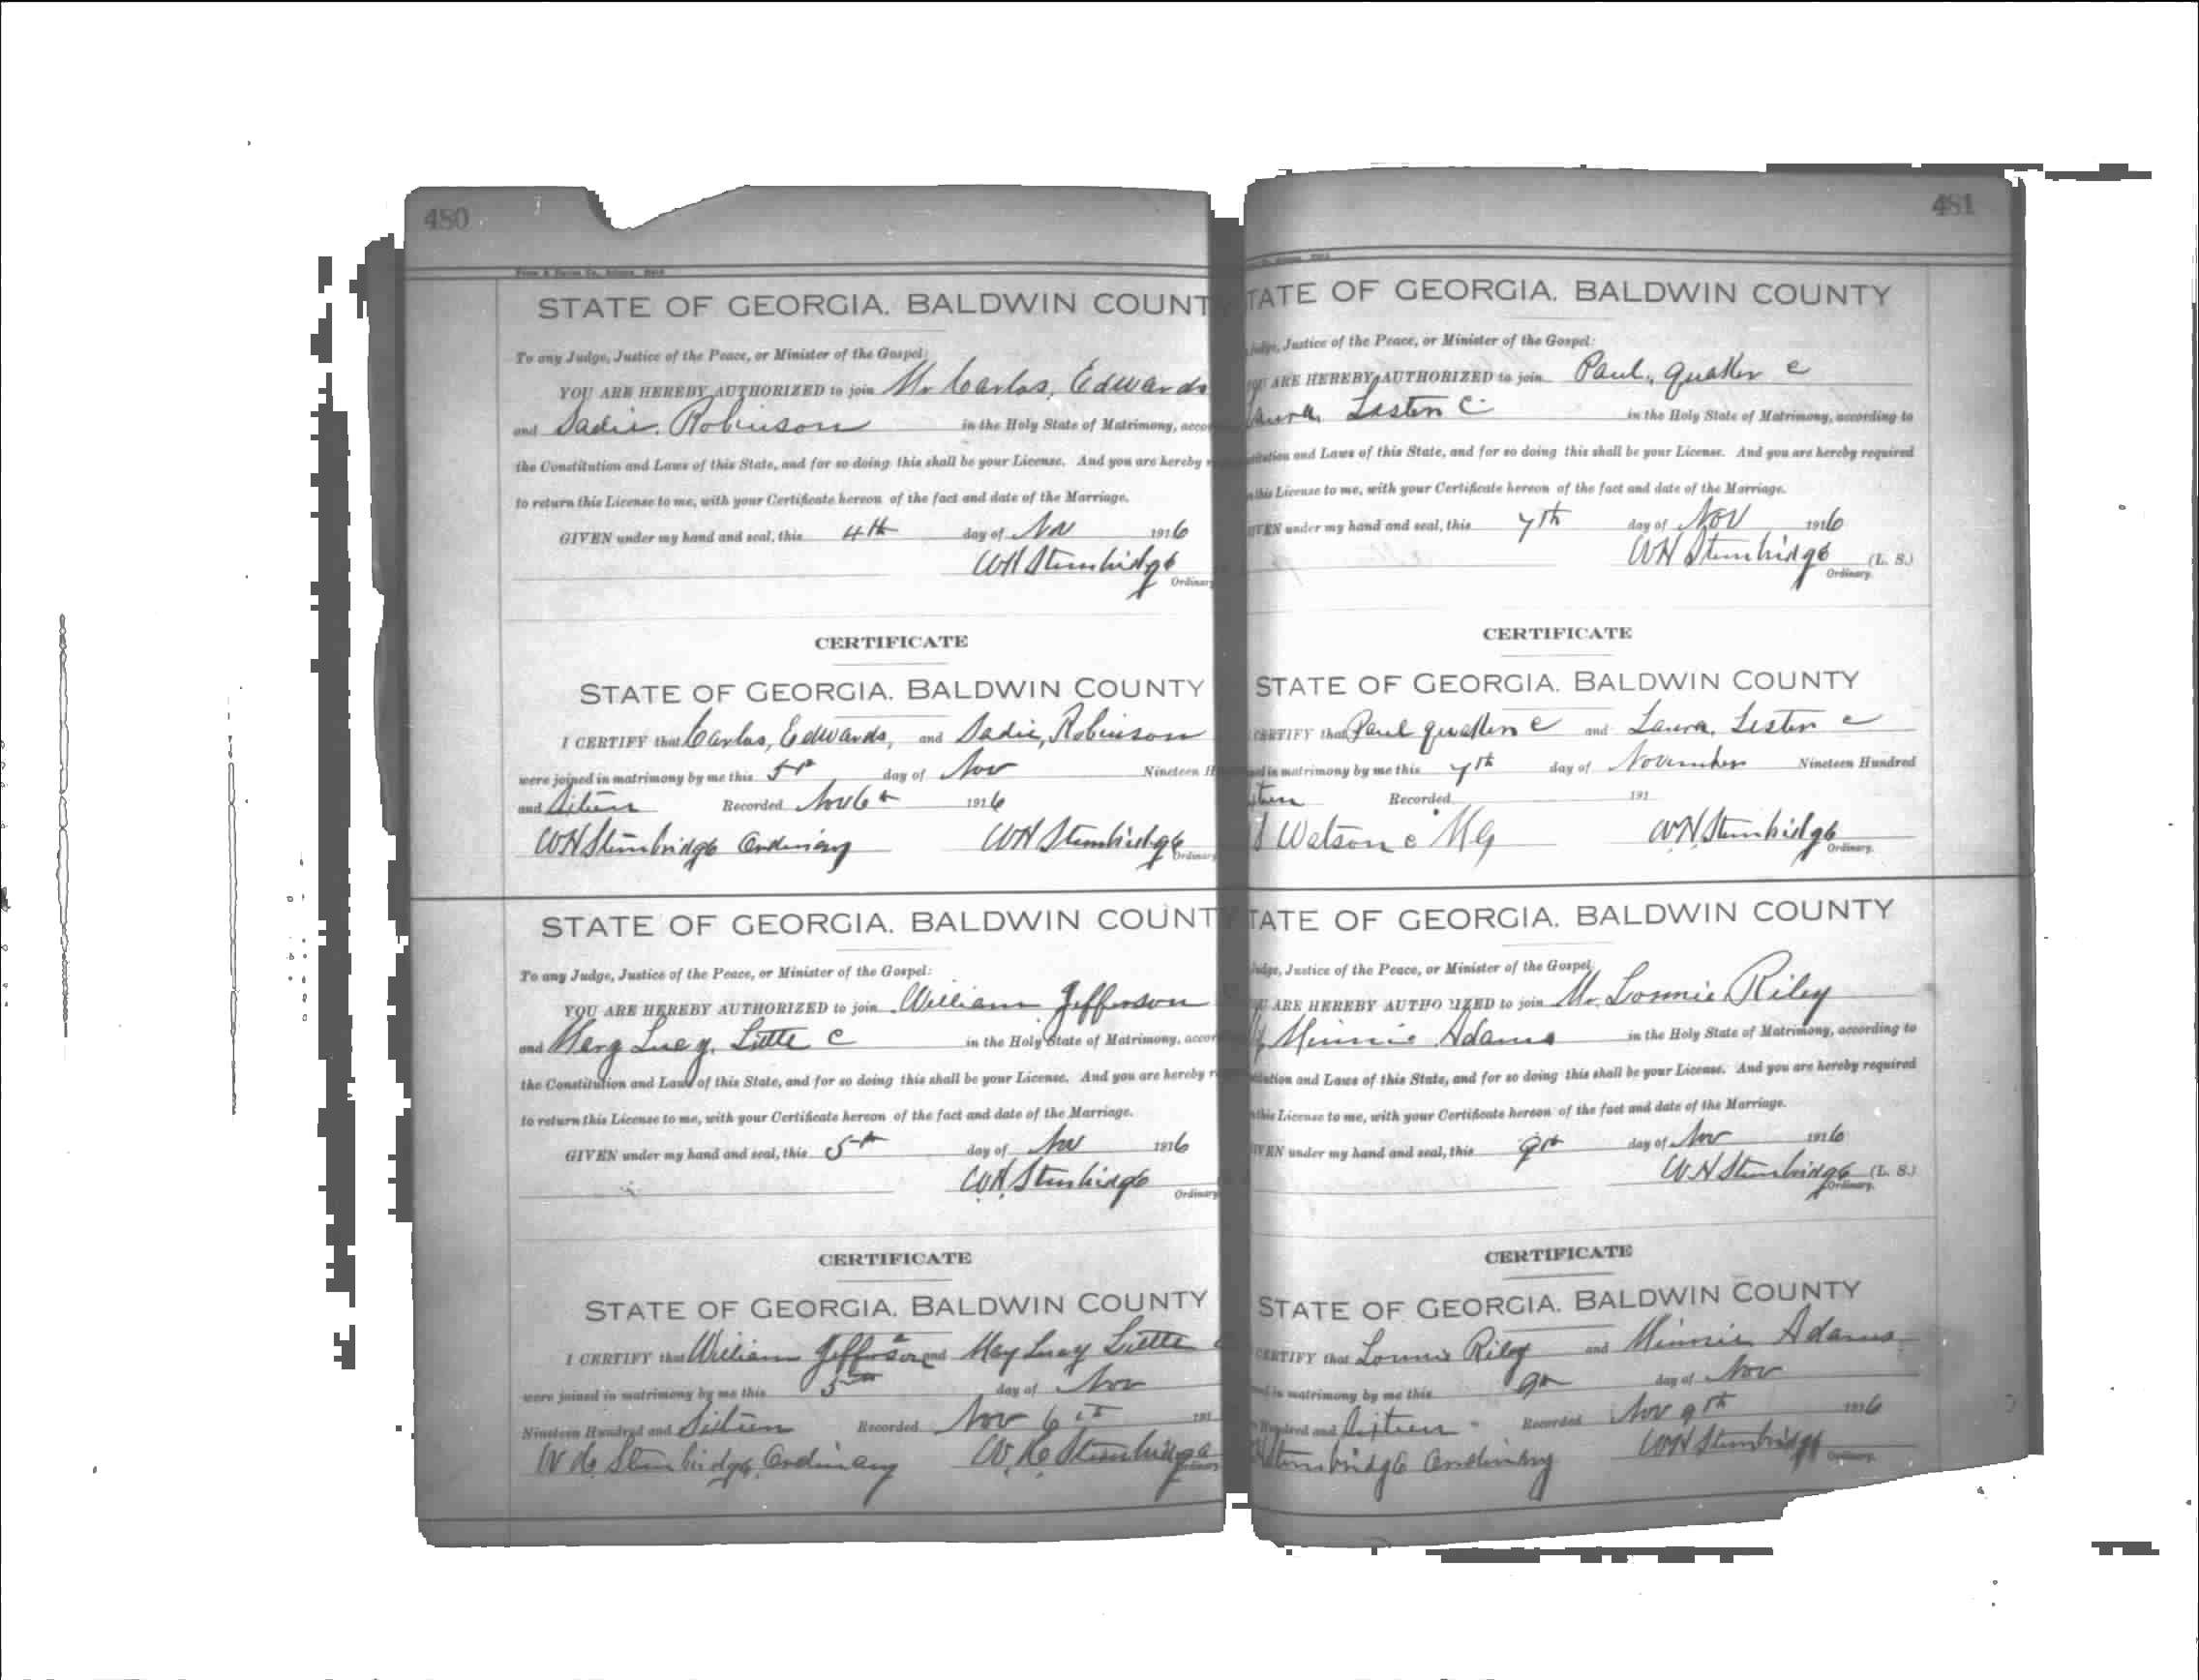 480
STATE OF GEORGIA. BALDWIN COUNT
To any Judge, Justice of the Peace, or Minister of the Gospel:
YOU ARE HEREBY AUTHORIZED to join Mr Carlos, Edwards
and Sadie, Robinson in the Holy State of Matrimony, accor
the Constitution and Laws of this State, and for so doing this shall be your License. And you are hereby r
to return this License to me, with your Certificate hereon of the fact and date of the Marriage.
GIVEN under my hand and seal, this 4th day of Nov 1916
WH Stembridge
Ordinary
CERTIFICATE
STATE OF GEORGIA. BALDWIN COUNTY
I CERTIFY that Carlos, Edwards, and Sadie, Robinson
were joined in matrimony by me this 5th day of Nov Nineteen H
and Sixteen Recorded Nov 6th 1916
WH Stembridge Ordinary WH Stembridge
Ordinary
STATE OF GEORGIA. BALDWIN COUNTY
To any Judge, Justice of the Peace, or Minister of the Gospel:
YOU ARE HEREBY AUTHORIZED to join William Jefferson
and Mary Lucy, Little C in the Holy State of Matrimony, accor
the Constitution and Laws of this State, and for so doing this shall be your License. And you are hereby r
to return this License to me, with your Certificate hereon of the fact and date of the Marriage.
GIVEN under my hand and seal, this 5th day of Nov 1916
W.H Stembridge
Ordinary
CERTIFICATE
STATE OF GEORGIA. BALDWIN COUNTY
I CERTIFY that William Jefferson and May Lucy Little
were joined in matrimony by me this 5th day of Nov
Nineteen Hundred and Sixteen Recorded Nov 6th 191
W.H. Stembridge, Ordinary W.H. Stembridge
481
TATE OF GEORGIA. BALDWIN COUNTY
Judge, Justice of the Peace, or Minister of the Gospel:
YOU ARE HEREBY AUTHORIZED to join Paul, c
aura, Lester C in the Holy State of Matrimony, according to
titution and Laws of this State, and for so doing this shall be your License. And you are hereby required
this License to me, with your Certificate hereon of the fact and date of the Marriage.
GIVEN under my hand and seal, this 7th day of Nov 1916
WH Stembridge (L. S.)
Ordinary.
CERTIFICATE
STATE OF GEORGIA. BALDWIN COUNTY
CERTIFY that Paul c and Laura, Lester c
ed in matrimony by me this 7th day of November Nineteen Hundred
xteen Recorded 191
Watson c MG W.H. Stembridge
Ordinary.
TATE OF GEORGIA. BALDWIN COUNTY
Judge, Justice of the Peace, or Minister of the Gospel:
YOU ARE HEREBY AUTHO IZED to join Mr. Lonnie Riley
Minnie Adams in the Holy State of Matrimony, according to
titution and Laws of this State, and for so doing this shall be your License. And you are hereby required
this License to me, with your Certificate hereon of the fact and date of the Marriage.
GIVEN under my hand and seal, this 9th day of Nov 1916
W.H Stembridge (L. S.)
Ordinary.
CERTIFICATE
STATE OF GEORGIA. BALDWIN COUNTY
CERTIFY that Lonnie Riley and Minnie Adams
ed in matrimony by me this 9th day of Nov
Hundred and Sixteen Recorded Nov 9th 1916
Stembridge Ordinary WH Stembridge
Ordinary.